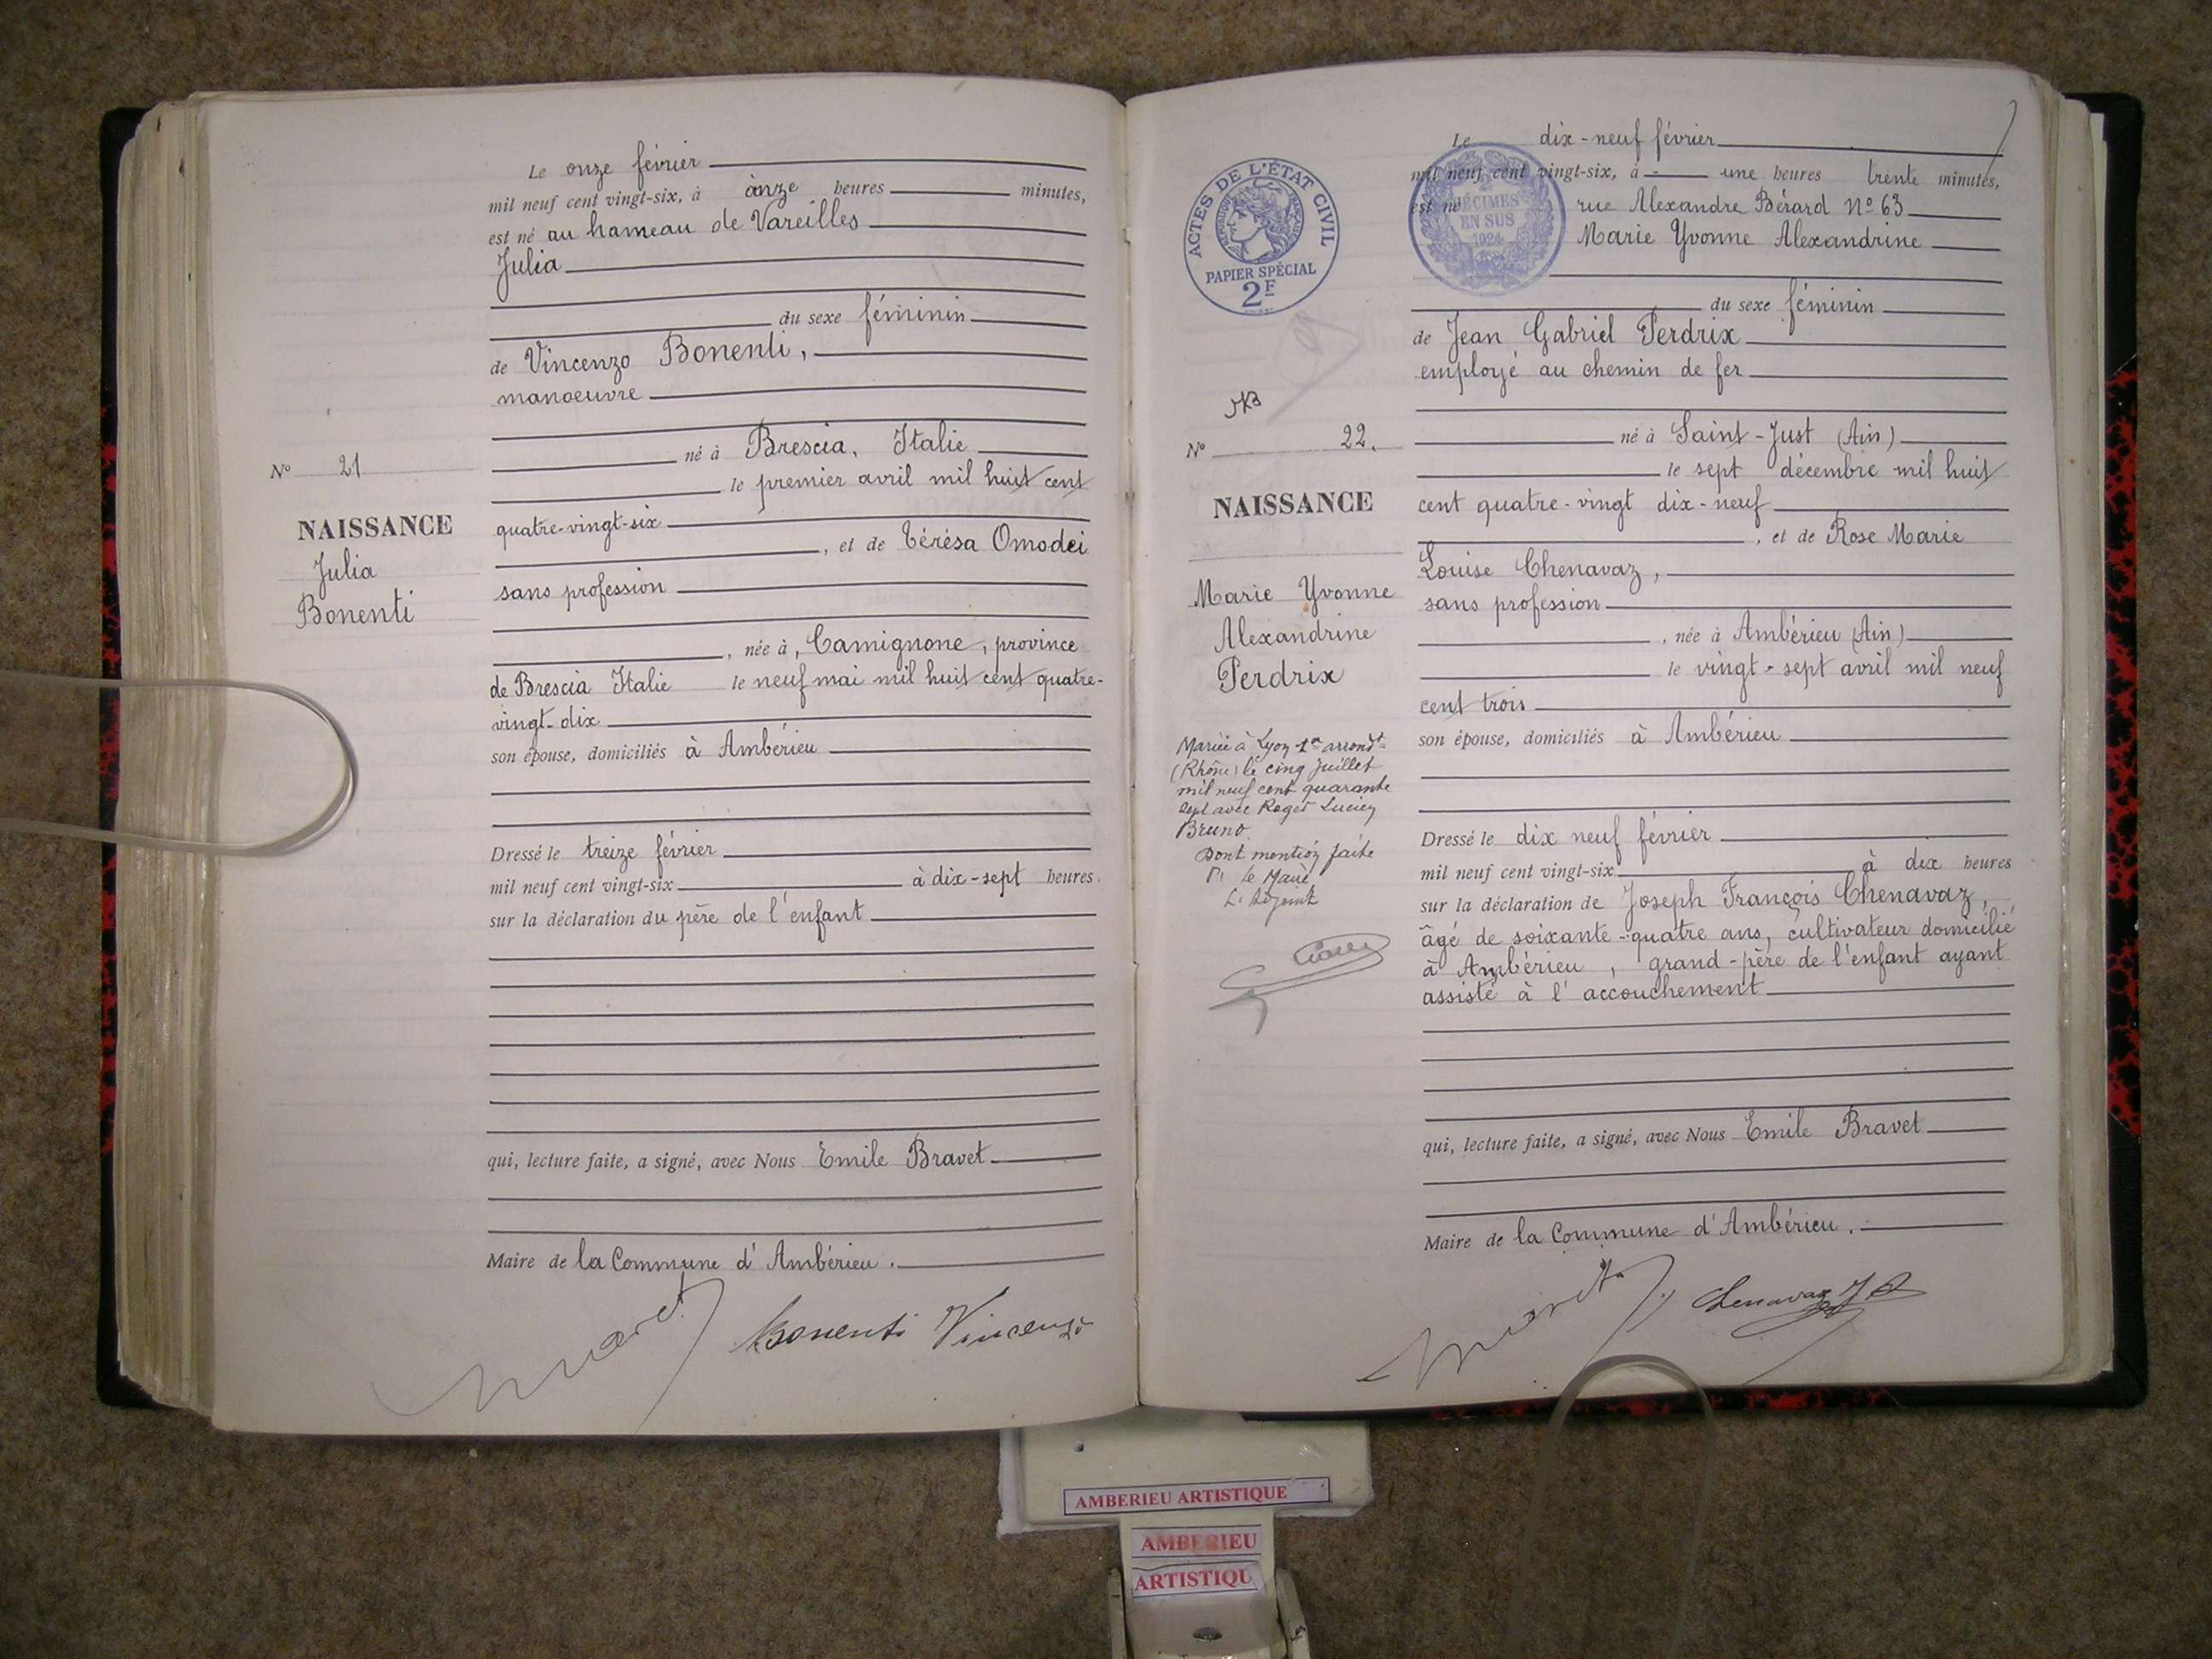 Le onze février
mil neuf cent vingt-six, à onze heures minutes,
est né au hameau de Vareilles
Julia
du sexe féminin
de Vincenzo Bonenti,
manoeuvre
né à Brescia, Italie
N° 21
le premier avril mil huit cent
quatre-vingt-six
NAISSANCE
Julia
Bonenti
, et de Térésa Omodei
sans profession
, née à, Camignone, province
de Brescia Italie le neuf mai mil huit cent quatre-
vingt-dix
son épouse, domiciliés à Ambérieu
Dressé le treize février
mil neuf cent vingt-six à dix-sept heures.
sur la déclaration du père de l'enfant
qui, lecture faite, a signé, avec Nous Emile Bravet
Maire de la Commune d'Ambérieu.
Bonenti Vincenzo
ACTES DE L'ÉTAT CIVIL
PAPIER SPÉCIAL
2F
2 DÉCIMES
EN SUS
1924
Le dix-neuf février
mil neuf cent vingt-six, à - une heures trente minutes,
est né rue Alexandre Bérard N° 63
Marie Yvonne Alexandrine
du sexe féminin
de Jean Gabriel Perdrix
employé au chemin de fer
N° 22.
né à Saint-Just (Ain)
le sept décembre mil huit
cent quatre-vingt dix-neuf
NAISSANCE
Marie Yvonne
Alexandrine
Perdrix
, et de Rose Marie
Louise Chenavaz,
sans profession
, née à Ambérieu (Ain)
le vingt-sept avril mil neuf
cent trois
son épouse, domiciliés à Ambérieu
Mariée à Lyon 1er arrondt
(Rhône) le cinq juillet
mil neuf cent quarante
sept avec Roger Lucien
Bruno.
Dont mention faite
Pr le Maire
L'Adjoint
Dressé le dix neuf février
mil neuf cent vingt-six à dix heures
sur la déclaration de Joseph François Chenavaz,
âgé de soixante-quatre ans, cultivateur domicilié
à Ambérieu, grand-père de l'enfant ayant
assisté à l'accouchement
qui, lecture faite, a signé, avec Nous Emile Bravet
Maire de la Commune d'Ambérieu.
Chenavaz J
AMBERIEU ARTISTIQUE
AMBERIEU
ARTISTIQU